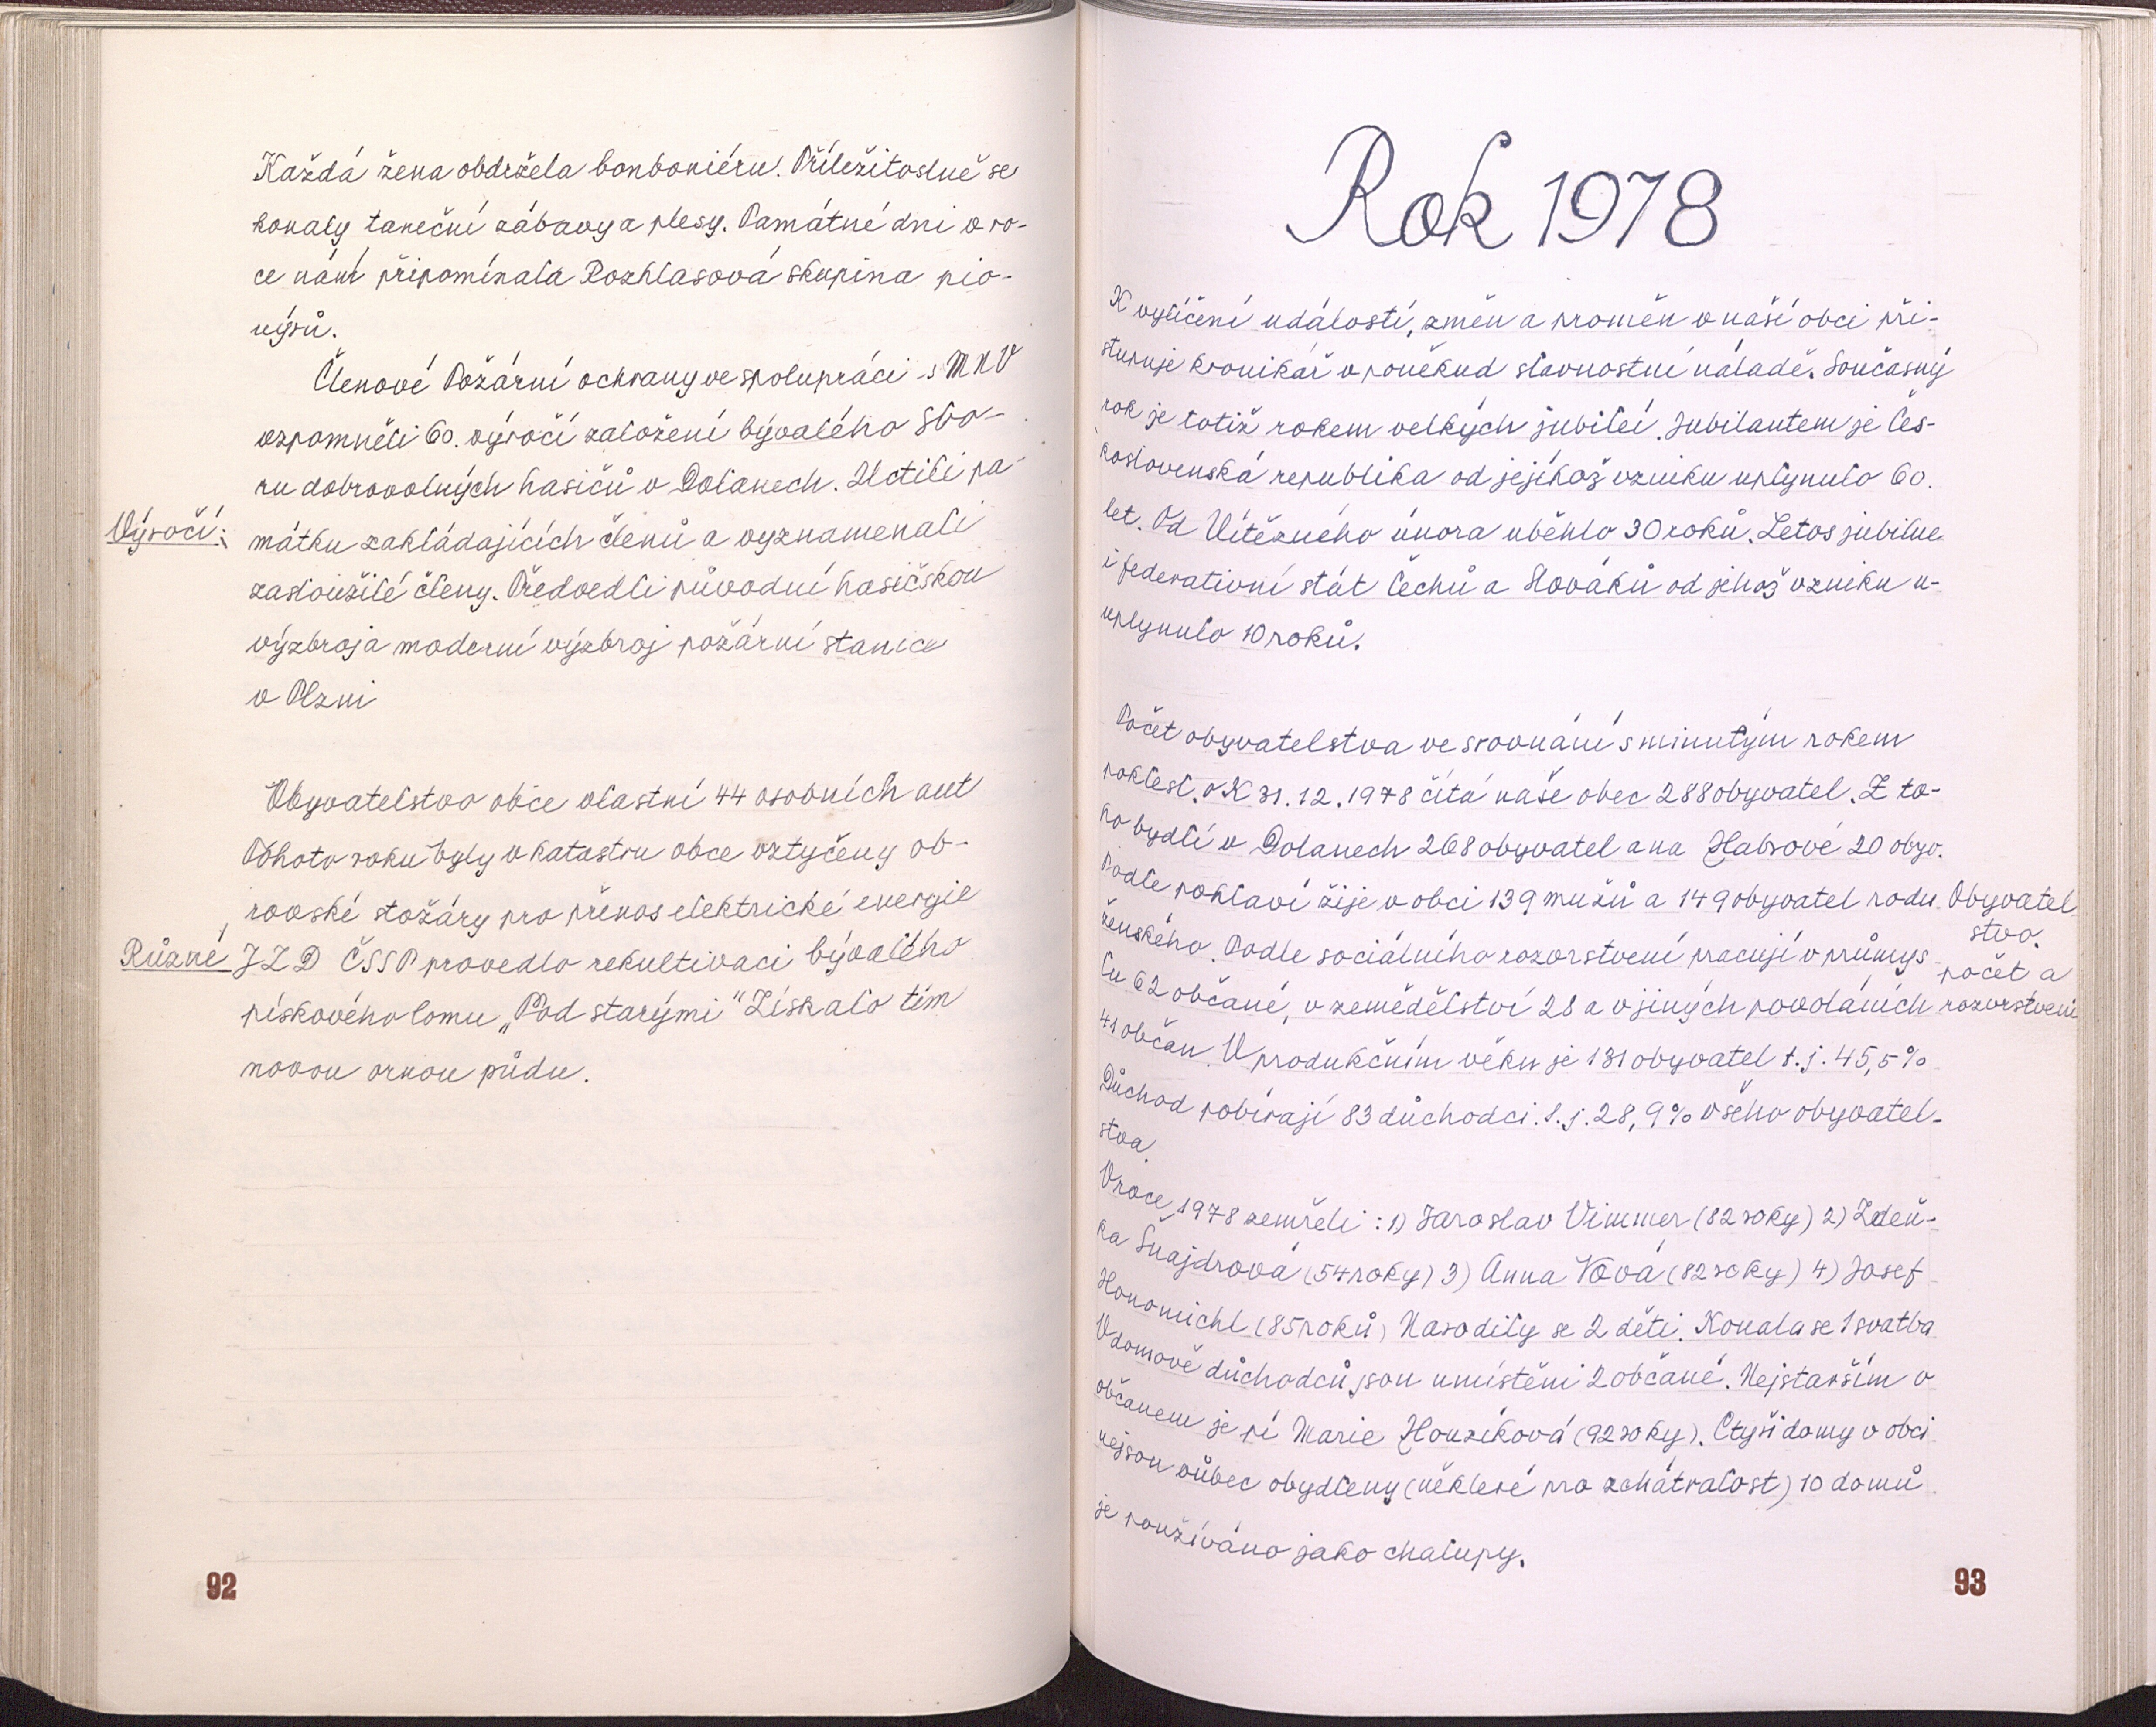 Každá žena obdržela bonboniéru. Příležitostně se
konaly taneční zábavy a plesy. Památné dni v ro-
ce nám připomínala Rozhlasová skupina pio-
nýrů.
Členové Požární ochrany ve spolupráci s MNV
vzpomněli 60. výročí založení bývalého Sbo-
ru dobrovolných hasičů v Dolanech. Uctili pa-
Výročí:
mátku zakládajících členů a vyznamenali
zasloužilé členy. Předvedli původní hasičskou
výzbroj a moderní výzbroj požární stanice
v Plzni
Obyvatelstvo obce vlastní 44 osobních aut
Tohoto roku byly v katastru obce vztyčeny ob-
rovské stožáry pro přenos elektrické energie
Různé
JZD ČSSP provedlo rekultivaci bývalého
pískového lomu „Pod starými" Získalo tím
novou ornou půdu.
92
Rok 1978
K vylíčení událostí, změn a proměn v naší obci při-
stupuje kronikář v poněkud slavnostní náladě. Současný
rok je totiž rokem velkých jubileí. Jubilantem je čes-
koslovenská republika od jejíhož vzniku uplynulo 60.
let. Od Vítězného února uběhlo 30 roků. Letos jubiluje
i federativní stát Čechů a Slováků od jehož vzniku u-
uplynulo 10 roků.
Počet obyvatelstva ve srovnání s minulým rokem
poklesl. K 31. 12. 1978 čítá naše obec 288 obyvatel. Z to-
ho bydlí v Dolanech 268 obyvatel a na Habrové 20 obyv.
Podle pohlaví žije v obci 139 mužů a 149 obyvatel rodu
ženského. Podle sociálního rozvrstvení pracují v průmys
lu 62 občané, v zemědělství 28 a v jiných povoláních
41 občan. V produkčním věku je 131 obyvatel t.j. 45,5%
Důchod pobírají 83 důchodci. t.j. 28,9% všeho obyvatel-
stva.
Obyvatel
stvo.
počet a
rozvrstvení
V roce 1978 zemřeli: 1) Jaroslav Vimmer (82 roky) 2) Zdeň-
ka Šnajdrová (54 roky) 3) Anna Vová (82 roky) 4) Josef
Honomichl (85 roků) Narodily se 2 děti. Konala se 1 svatba
V domově důchodců jsou umístěni 2 občané. Nejstarším o
občanem je pí Marie Houzíková (92 roky). Čtyři domy v obci
nejsou vůbec obydleny (některé pro zchátralost) 10 domů
je používáno jako chalupy.
93